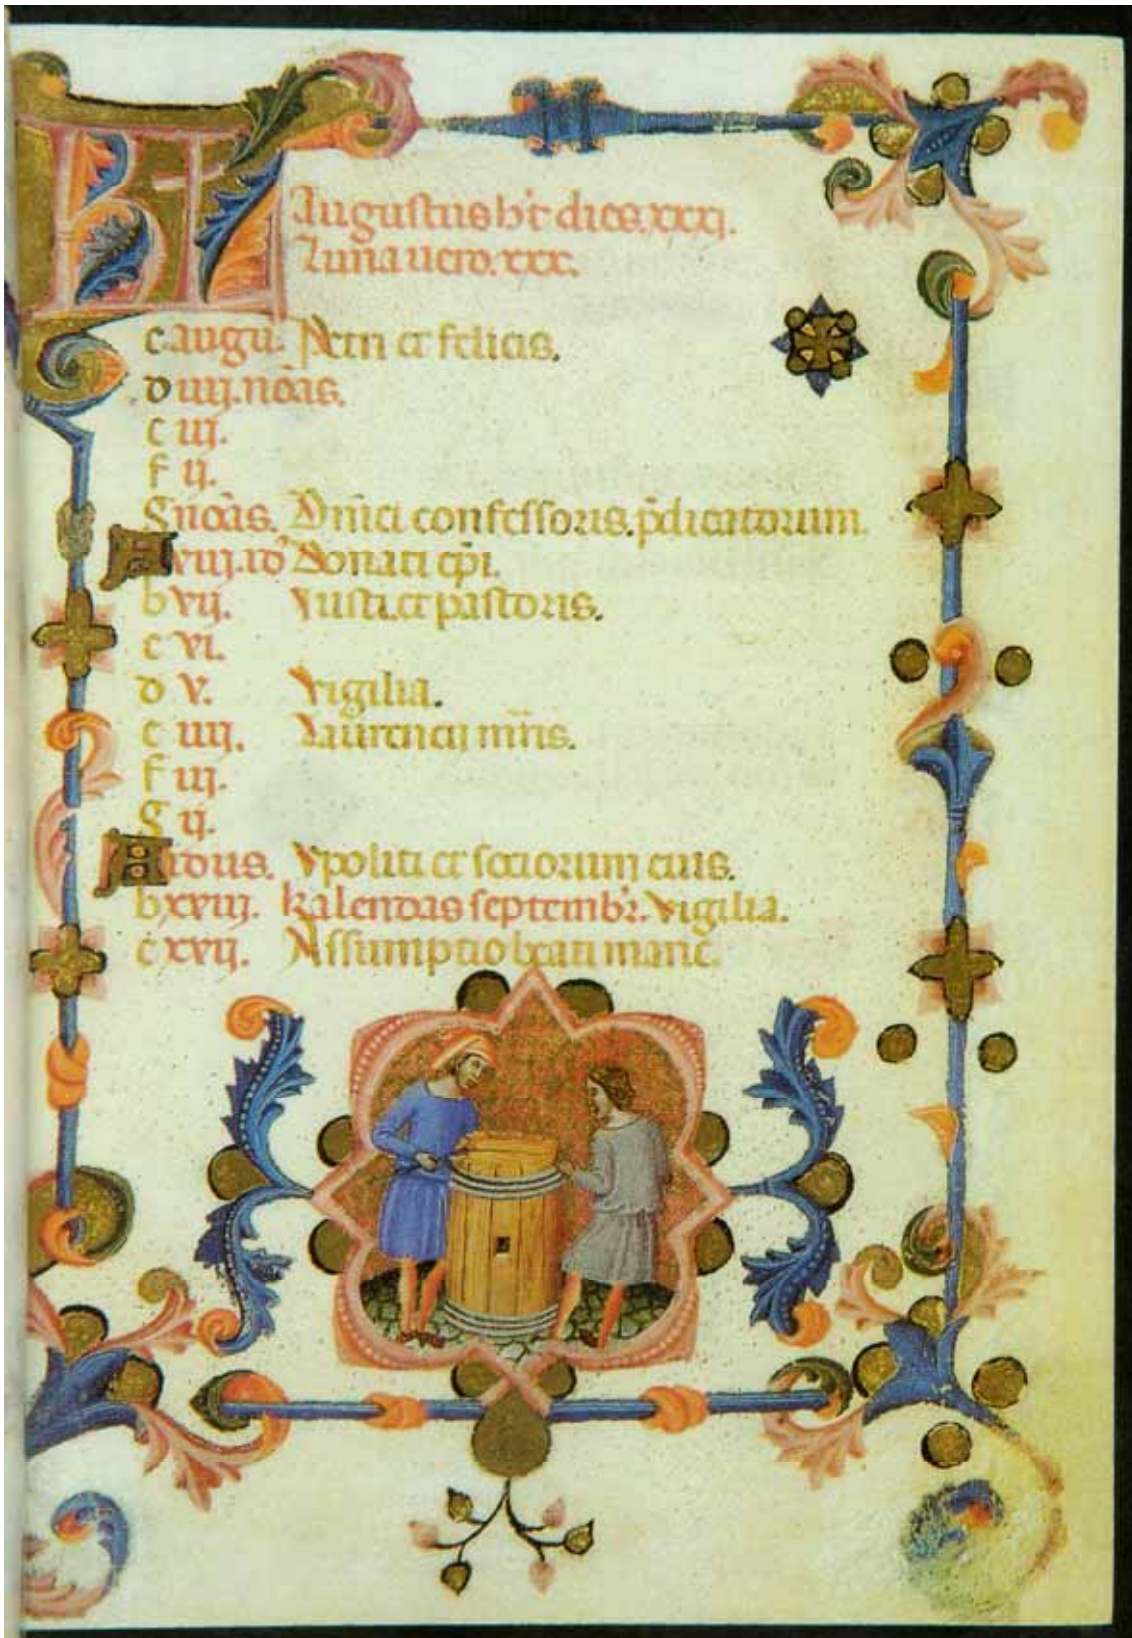 KL
Augustus h't dies xxxi.
Luna uero. xxx.
c. augu. Petri et felicis.
d iiij. nōas.
e iij.
f ij.
G nōas. Dn̄ici confessoris. p̄dicatorum.
A viij. id' Donati ep̄i.
b vij. Iusti. et pastoris.
c vi.
d v. Vigilia.
e iiij. Laurencij mr̄is.
f iij.
G ij.
A idus. Ypoliti et sociorum eius.
b xviij. kalendas septembr̄. Vigilia.
c xvij. Assumptio beati marie.